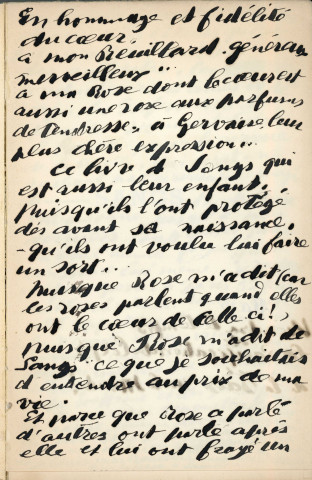 En hommage et fidélité
du cœur.
à mon Breuillard, généreux
merveilleux...
à ma Rose dont le cœur est
aussi une rose aux parfums
de tendresse, à Gervaise, leur
plus chère expression...
Ce livre qui
est aussi leur enfant,
puisqu'ils l'ont protégé
dès avant sa naissance,
- qu'ils ont voulu lui faire
un sort...
puisque Rose m'a dit (car
les roses parlent quand elles
ont le cœur de celle-ci !)
puisque Rose m'a dit de
ce que je souhaitais
d'entendre au prix de ma
vie.
Et parce que Rose a parlé
d'autres ont parlé après
elle et lui ont frayé un